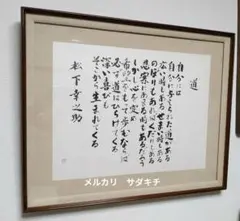 道
自分には
自分に与えられた道がある
広い時もある せまい時もある
のぼりもあれば くだりもある
思案にあまる時もあろう
しかし心を定め
希望をもって歩むならば
必ず道はひらけてくる
深い喜びも
そこから生まれてくる
松下幸之助
メルカリ サダキチ